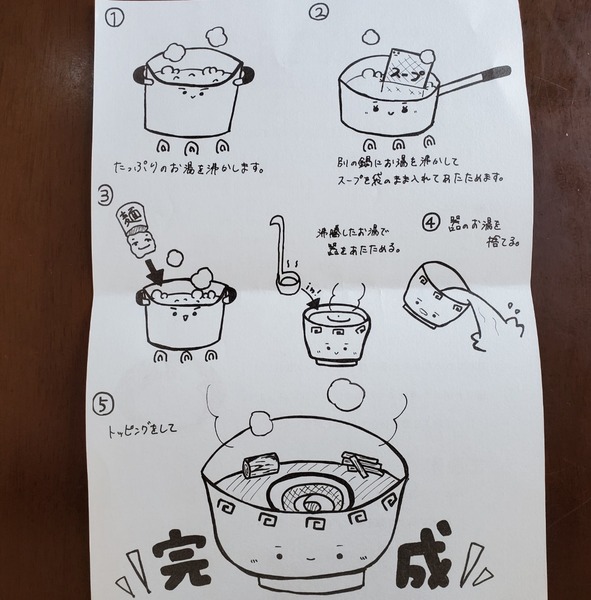 ①
たっぷりのお湯を沸かします。
②
スープ
別の鍋にお湯を沸かして
スープを袋のまま入れてあたためます。
③
麺
沸騰したお湯で
器をあたためる。
④
器のお湯を
捨てる。
⑤
トッピングをして
完成